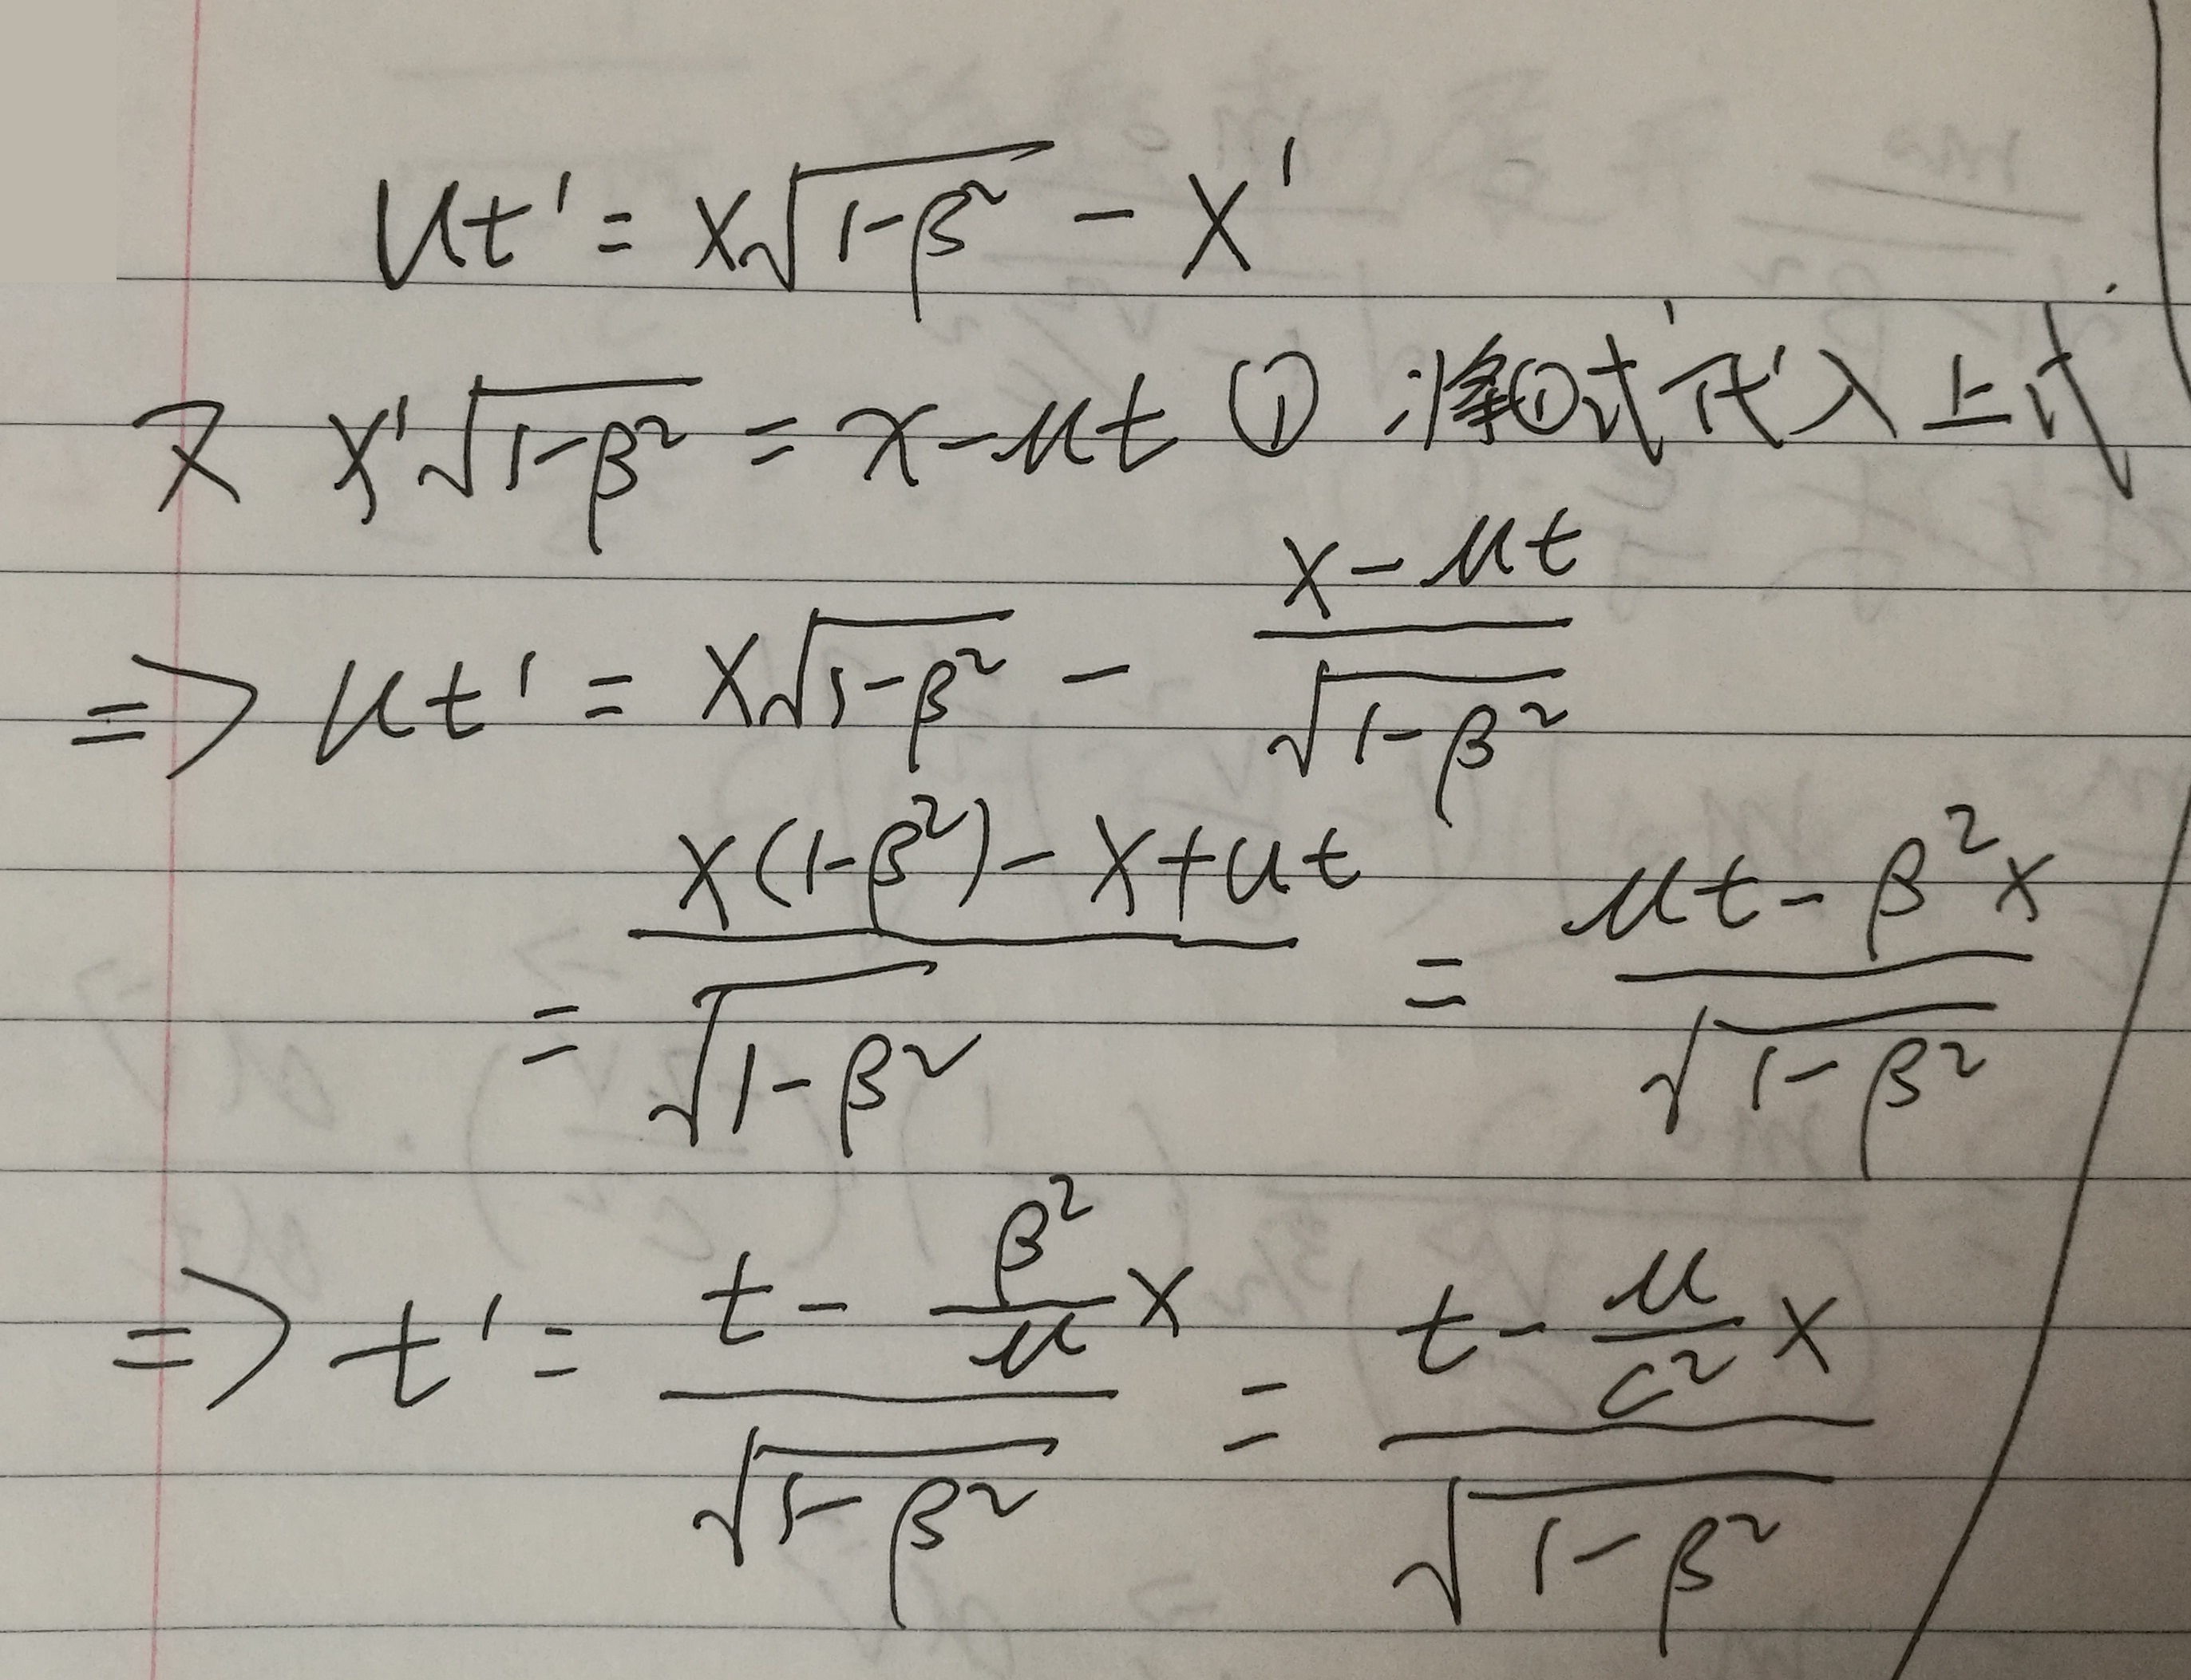 ut' = x√(1-β²) - x'
又 x'√(1-β²) = x-ut ① 将①式代入上式
=> ut' = x√(1-β²) - (x-ut)/√(1-β²)
= (x(1-β²)-x+ut)/√(1-β²) = (ut-β²x)/√(1-β²)
=> t' = (t-(β²/u)x)/√(1-β²) = (t-(u/c²)x)/√(1-β²)